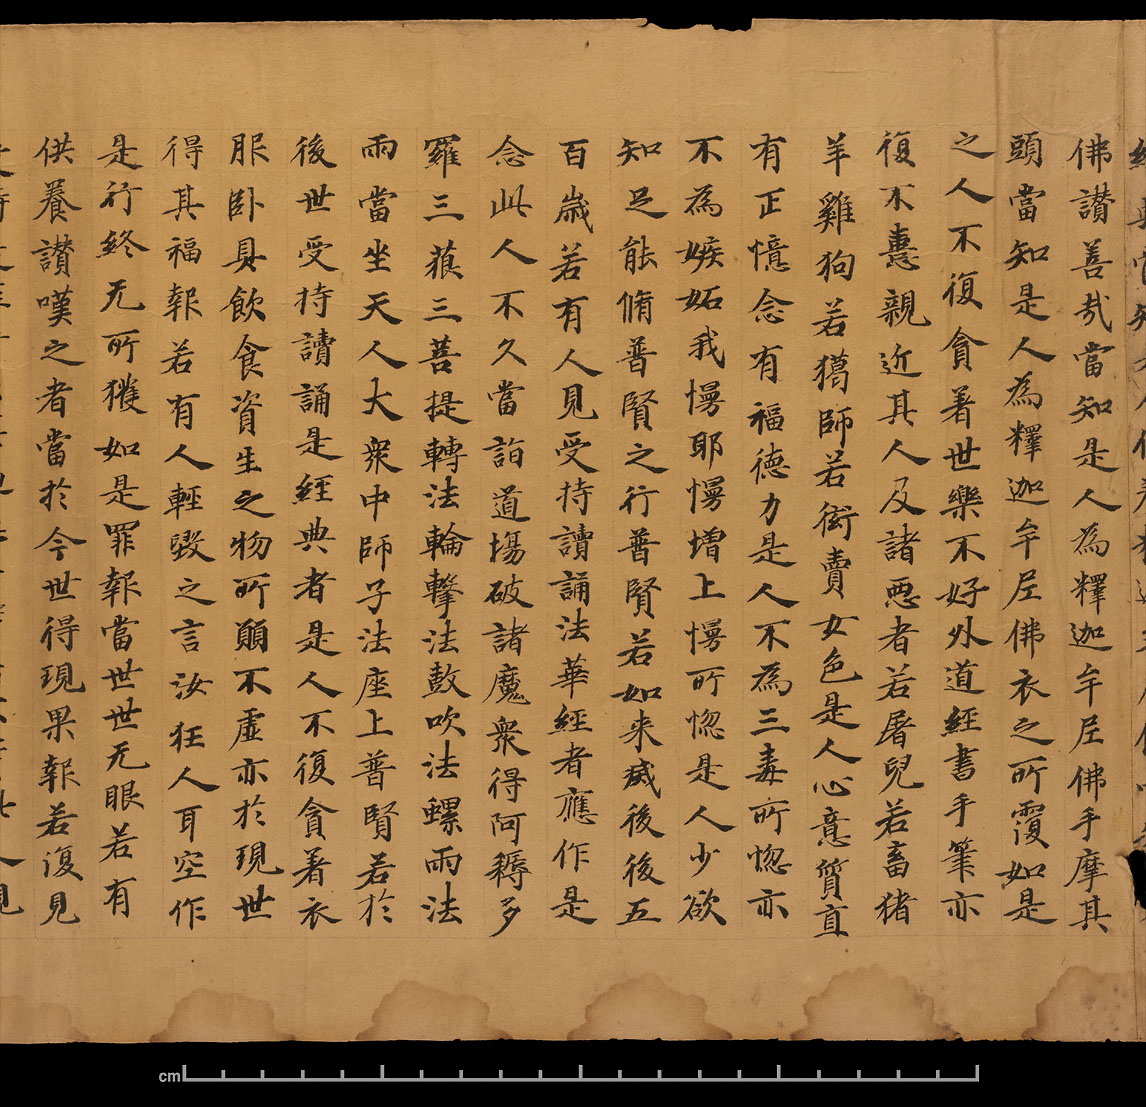 佛讃善哉當知是人為釋迦牟尼佛手摩其
頭當知是人為釋迦牟尼佛衣之所覆如是
之人不復貪著世樂不好外道經書手筆亦
復不憙親近其人及諸惡者若屠兒若畜猪
羊雞狗若獦師若衒賣女色是人心意質直
有正憶念有福德力是人不為三毒所惱亦
不為嫉妬我慢耶慢增上慢所惱是人少欲
知足能脩普賢之行普賢若如来滅後後五
百歲若有人見受持讀誦法華經者應作是
念此人不久當詣道場破諸魔衆得阿耨多
羅三藐三菩提轉法輪擊法鼓吹法螺雨法
雨當坐天人大衆中師子法座上普賢若於
後世受持讀誦是經典者是人不復貪著衣
服卧具飲食資生之物所願不虛亦於現世
得其福報若有人輕毀之言汝狂人耳空作
是行終无所獲如是罪報當世世无眼若有
供養讃嘆之者當於今世得現果報若復見